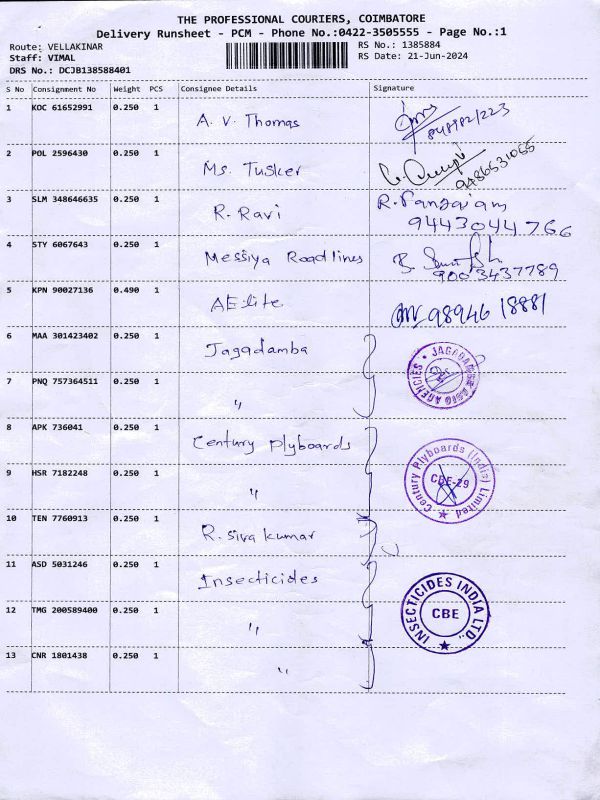 THE PROFESSIONAL COURIERS, COIMBATORE
Delivery Runsheet - PCM - Phone No.:0422-3505555 - Page No.:1
Route: VELLAKINAR
RS No.: 1385884
Staff: VIMAL
RS Date: 21-Jun-2024
DRS No.: DCJB138588401
S No Consignment No Weight PCS Consignee Details Signature
1 KOC 61652991 0.250 1 A. V. Thomas
2 POL 2596430 0.250 1 Ms. Tusker 9486531055
3 SLM 348646635 0.250 1 R. Ravi 9443044766
4 STY 6067643 0.250 1 Messiya Roadlines 9003437789
5 KPN 90027136 0.490 1 AElite 98946 18881
6 MAA 301423402 0.250 1 Jagadamba JAGADAMBA AGENCIES
7 PNQ 757364511 0.250 1 "
8 APK 736041 0.250 1 Century Plyboards
9 HSR 7182248 0.250 1 " Century Plyboards (India) Limited CBE-29
10 TEN 7760913 0.250 1 R. Siva kumar
11 ASD 5031246 0.250 1 Insecticides
12 TMG 200589400 0.250 1 " INSECTICIDES INDIA LTD., CBE
13 CNR 1801438 0.250 1 "